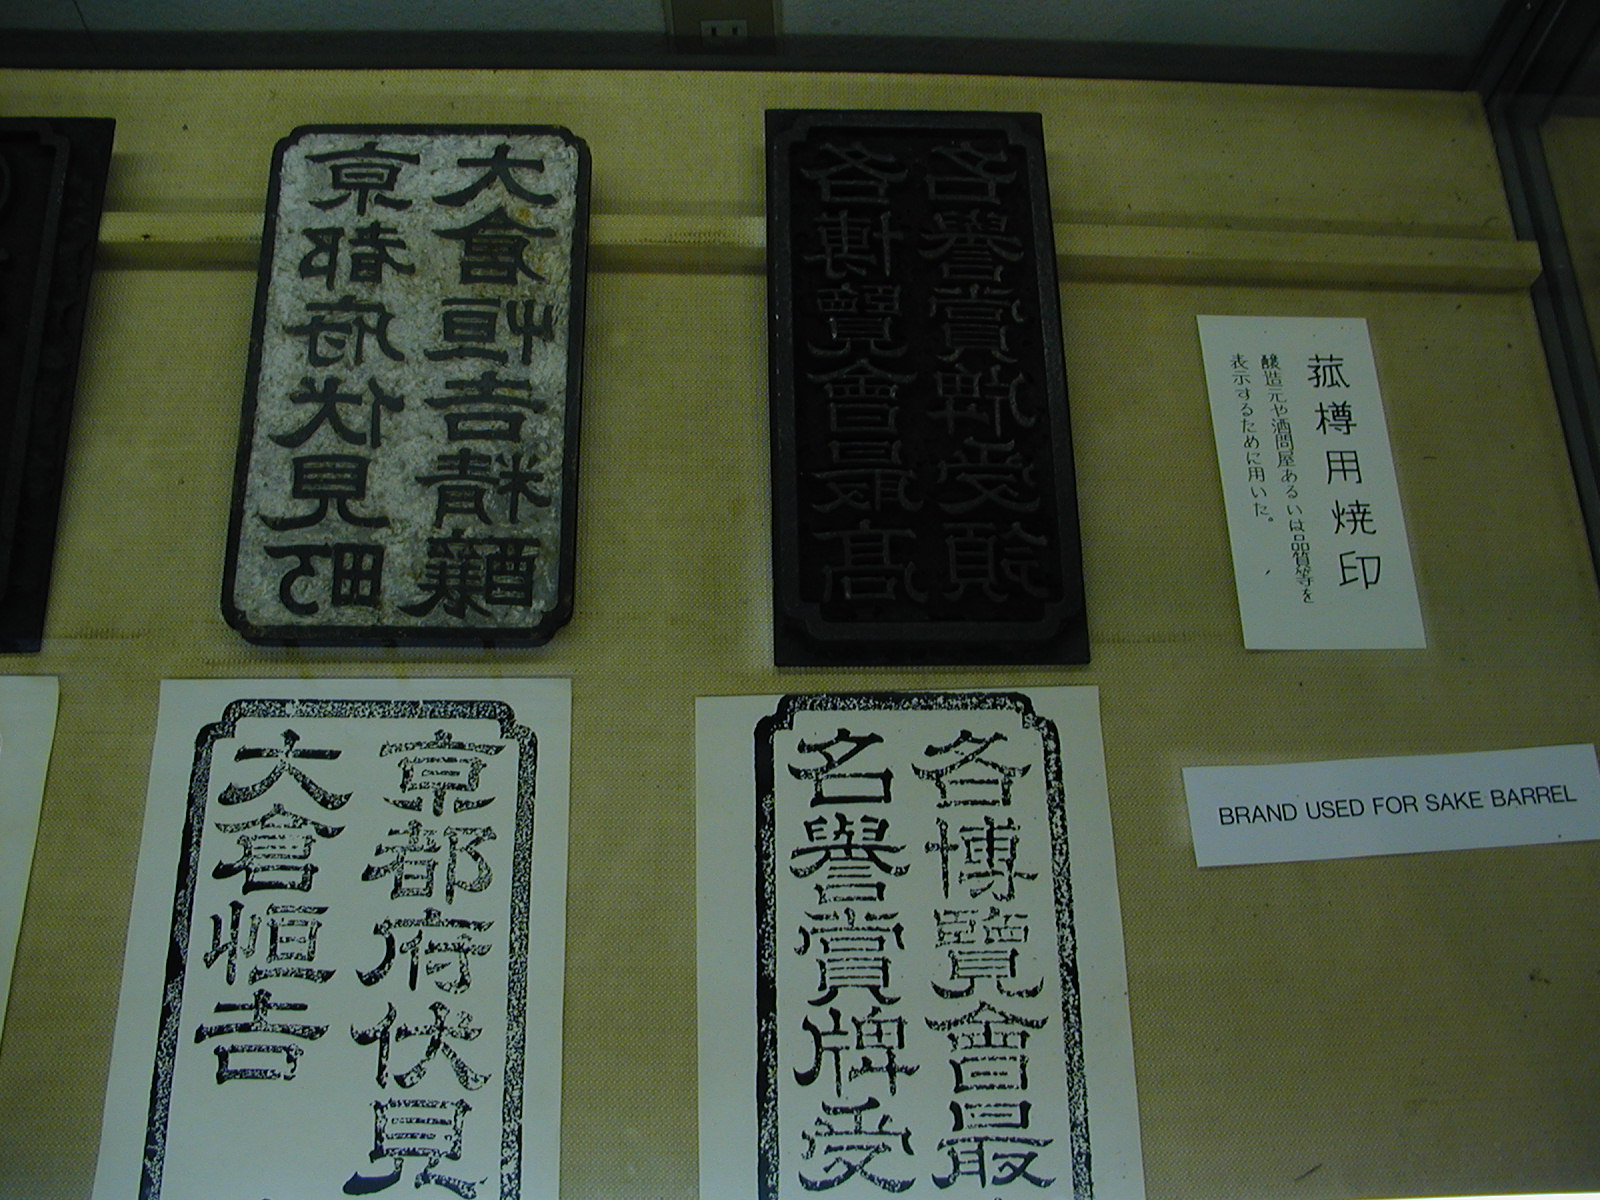 菰樽用焼印
醸造元や酒問屋あるいは品質等を
表示するために用いた。
BRAND USED FOR SAKE BARREL
京都府伏見町
大倉恒吉精釀
各博覽會最高
名譽賞牌受領
京都府伏見
大倉恒吉
各博覽會最
名譽賞牌受